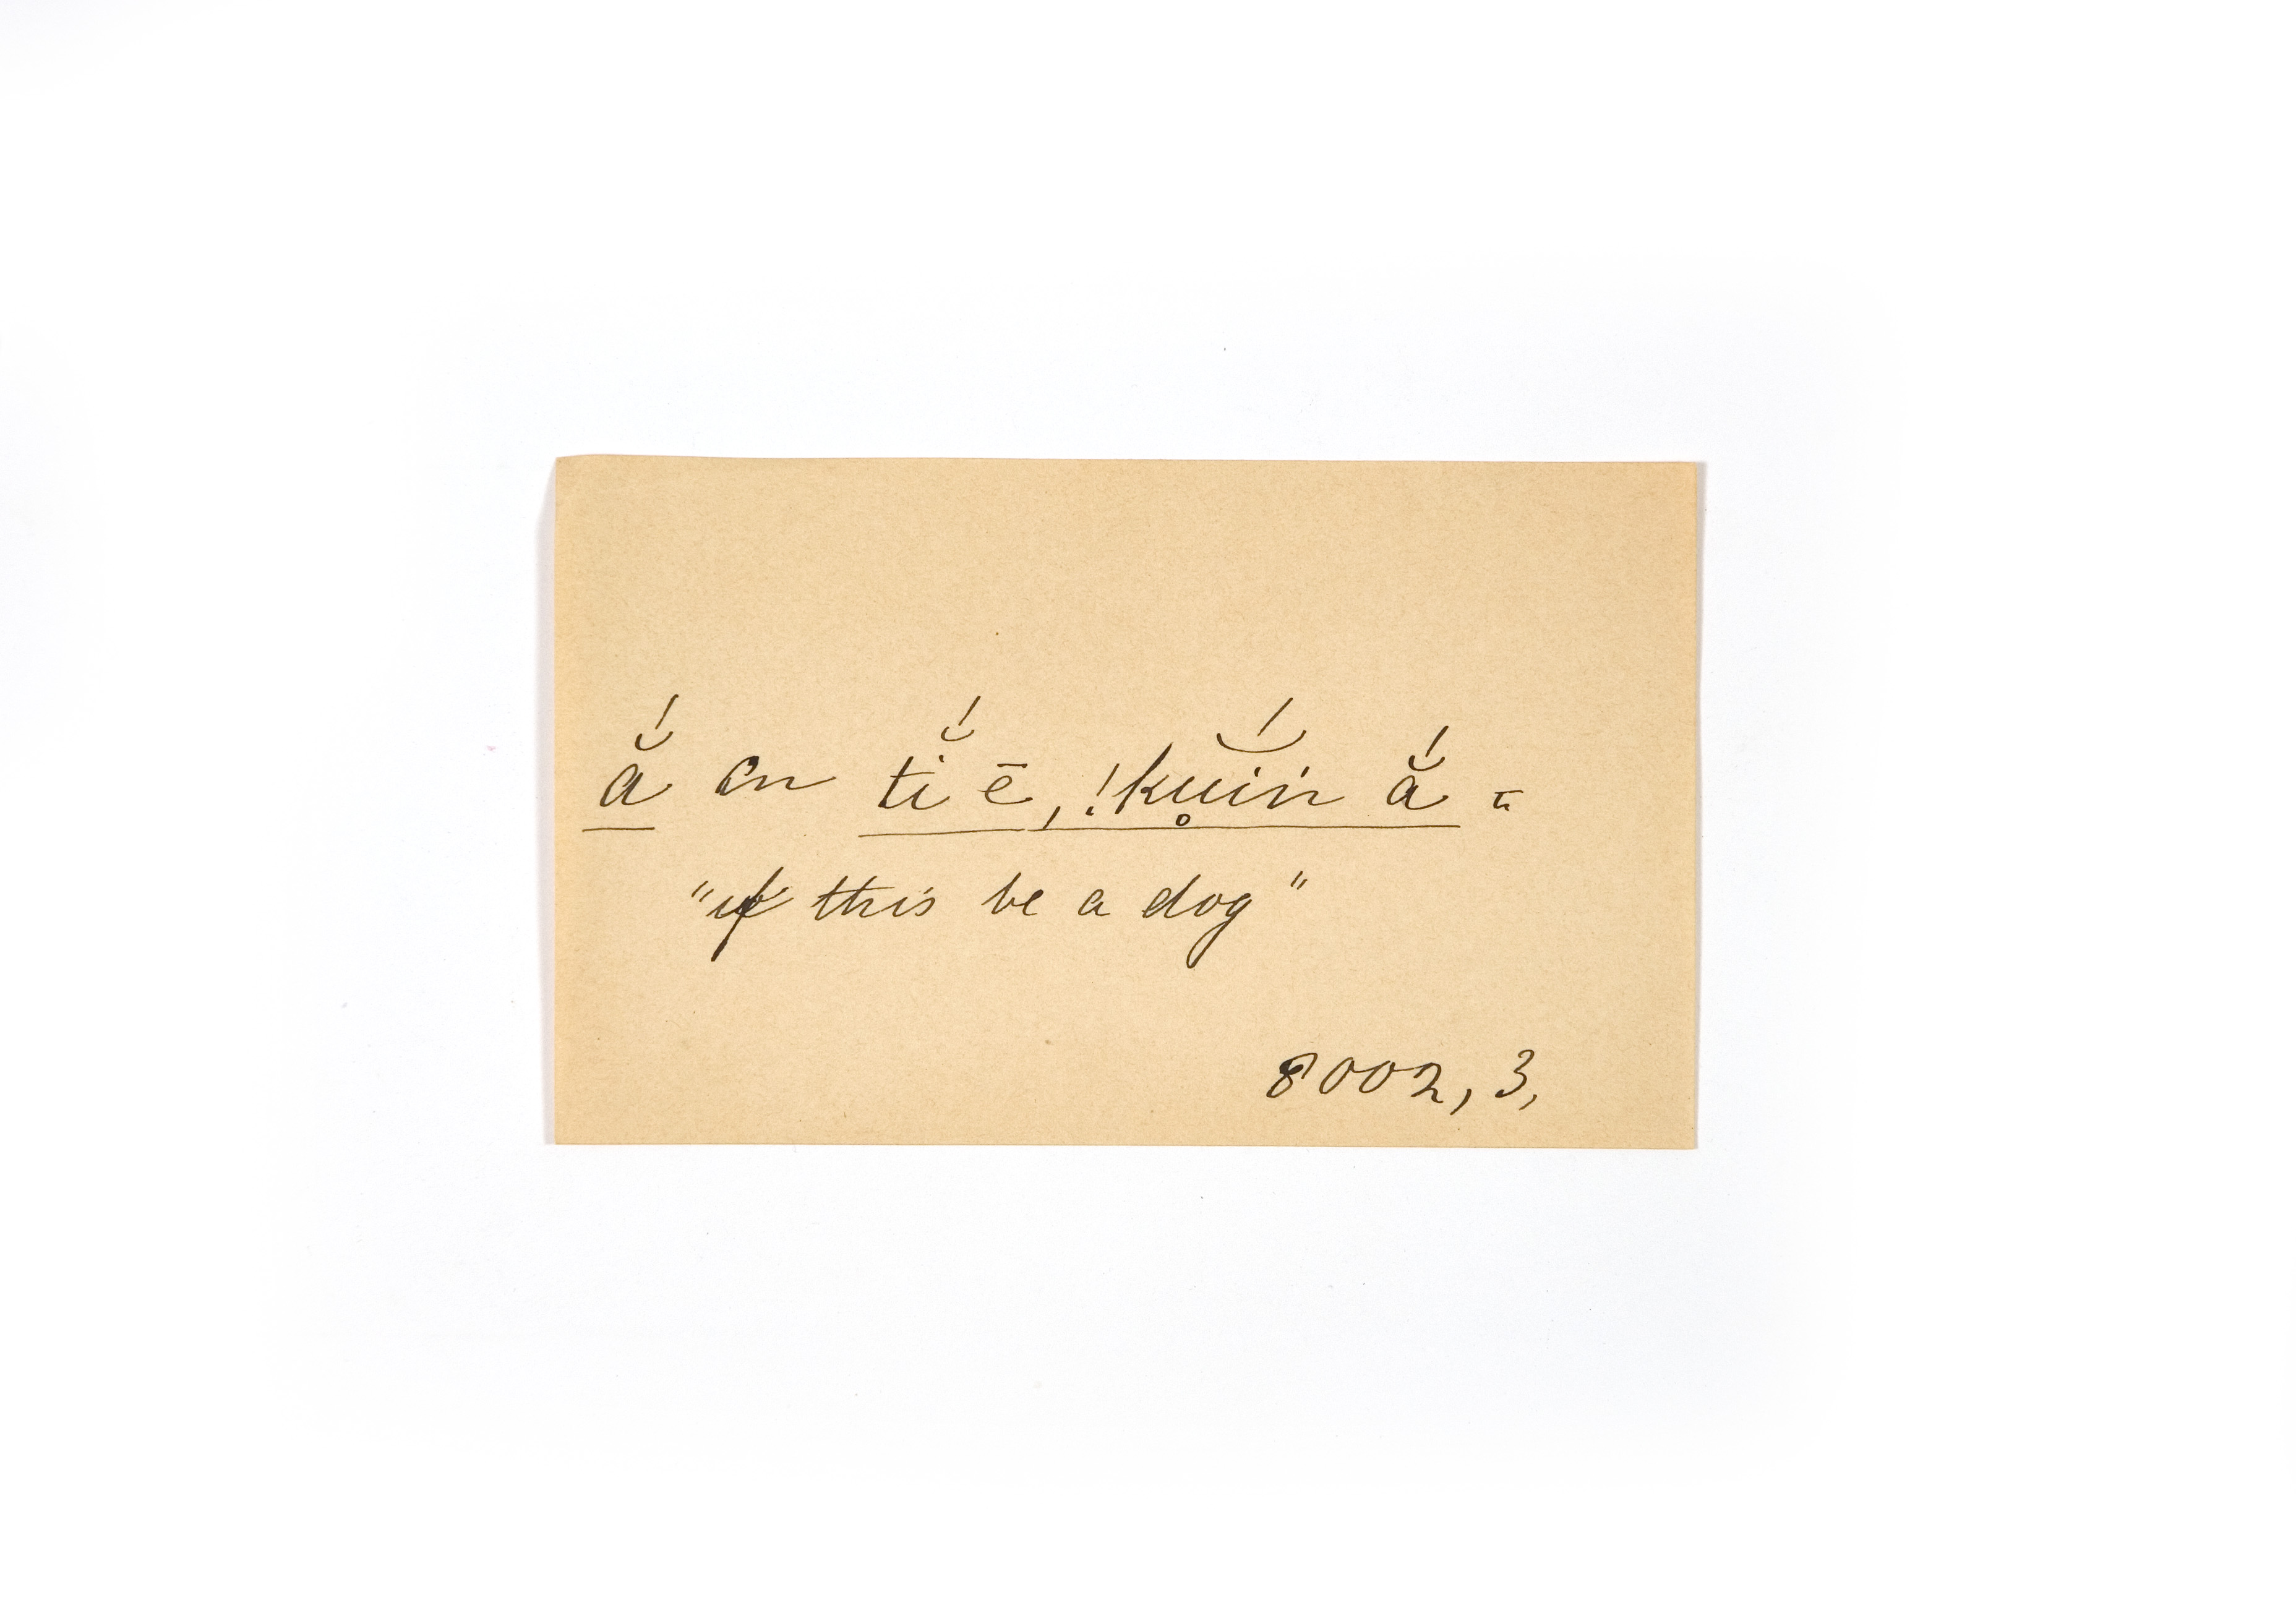 ắ en tĭ́ ē, !ku̥ĭ́n ắ =
"if this be a dog"
8002, 3,